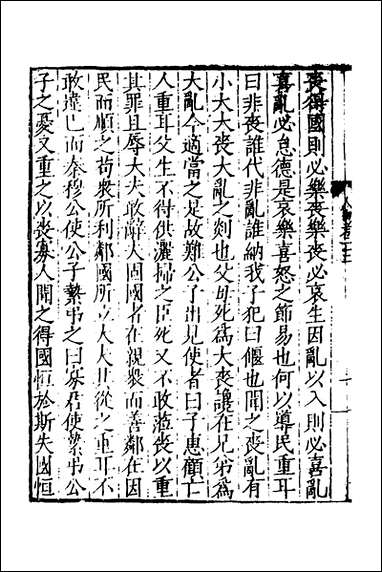 喪得國則必樂喪樂喪必哀生因亂以入則必喜亂
喜亂必怠德是哀樂喜怒之節易也何以導民重耳
曰非喪誰代非亂誰納我子犯曰偃也聞之喪亂有
小大大喪大亂之剡也父母死爲大喪讒在兄弟爲
大亂今適當之是故難公子出見使者曰子惠顧亡
人重耳父生不得供灑掃之臣死又不敢蒞喪以重
其罪且辱大夫敢辭夫固國者在親衆而善鄰在因
民而順之苟衆所利鄰國所立大夫其從之重耳不
敢違已而秦穆公使公子縶弔之曰寡君使縶弔公
子之憂又重之以喪寡人聞之得國恒於斯失國恒